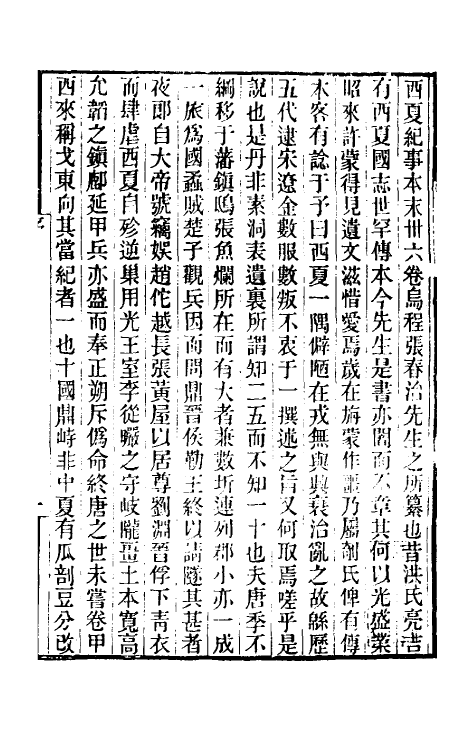 西夏紀事本末卅六卷烏程張春治先生之所纂也昔洪氏亮吉
有西夏國志世罕傳本今先生是書亦閟而不章其何以光盛業
昭來許蒙得見遺文滋惜愛焉歲在旃蒙作噩乃屬剞氏俾有傳
木客有諗于予曰西夏一隅僻陋在戎無與興衰治亂之故緜歷
五代逮宋遼金數服數叛不衷于一撰述之旨又何取焉嗟乎是
說也是丹非素洞表遺裏所謂知二五而不知一十也夫唐季不
綱移于藩鎮鴟張魚爛所在而有大者兼數圻連列郡小亦一成
一旅為國蟊賊楚子觀兵因而問鼎晉侯勤王終以請隧其甚者
夜郎自大帝號竊娛趙佗越長張黃屋以居尊劉淵晉俘下青衣
而肆虐西夏自殄逆巢用光王室李從曮之守岐隴畺土本寬高
允韜之鎮鄜延甲兵亦盛而奉正朔斥僞命終唐之世未嘗卷甲
西來稱戈東向其當紀者一也十國鼎峙非中夏有瓜剖豆分改
序
一